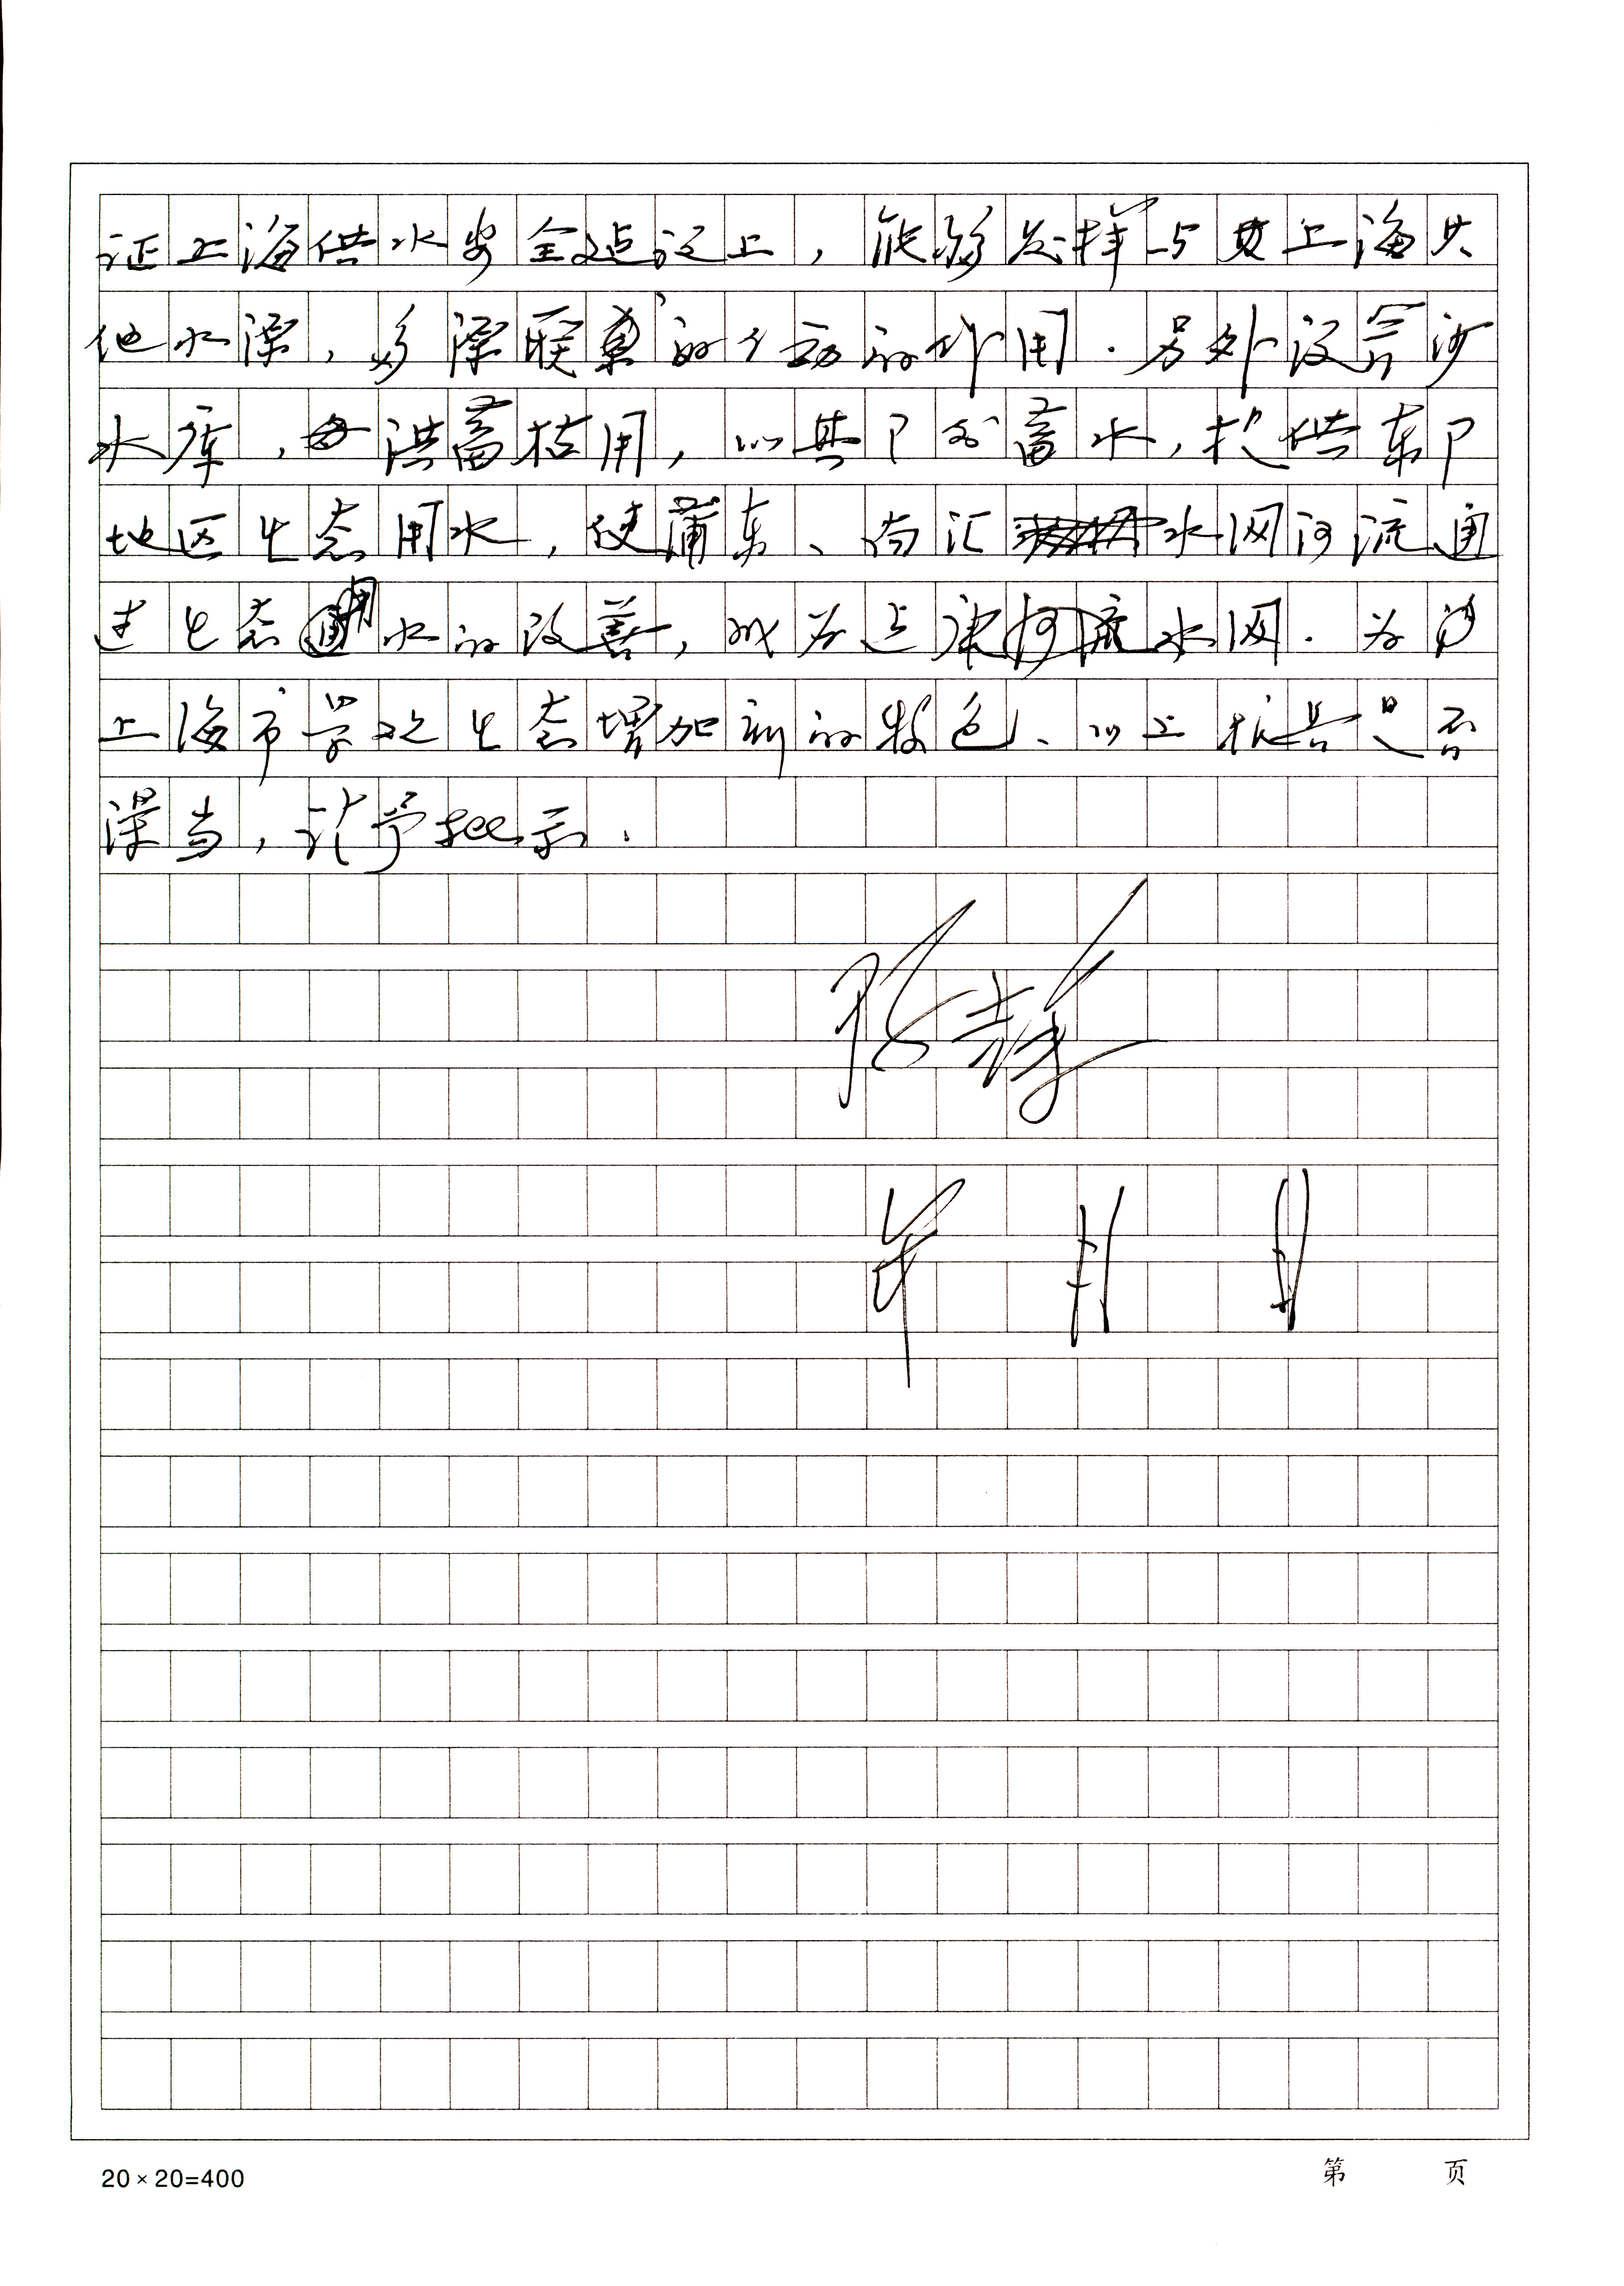 证上海供水安全建设上，能够发挥与其上海其
他水源，多源联的互动的作用．另外没沙
水库，蓄用，以其下水，提供东
地区生态用水，使蒲东、南汇水网河流通
过生态用水的改善，成为健康河流水网．为
上海市景观生态增加新的特色、以上报告是否
当，请予批示．
年 月 日
20×20=400
第 页